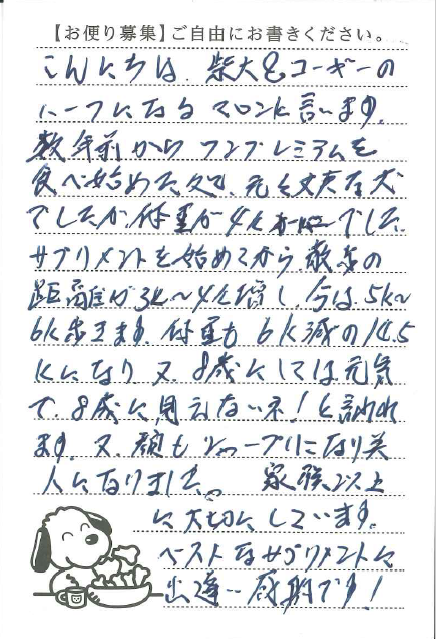 【お便り募集】ご自由にお書きください。
こんにちは、柴犬とコーギーの
ハーフになる マロンと言います。
数年前から ワンプレミアムを
食べ始めた父で、元々丈夫な犬
でしたが、体重が でした。
サプリメントを始めてから、散歩の
距離が3k〜4k増し、今は、5k〜
6k歩きます。体重も 6k減の14.5
kになり 又、8歳にしては元気
で、8歳に見えないネ!と言われ
ます。又、顔もシャープになり美
人になりました。 家族以上
に大切にしています。
ベストなサプリメントに
出逢い感謝です!